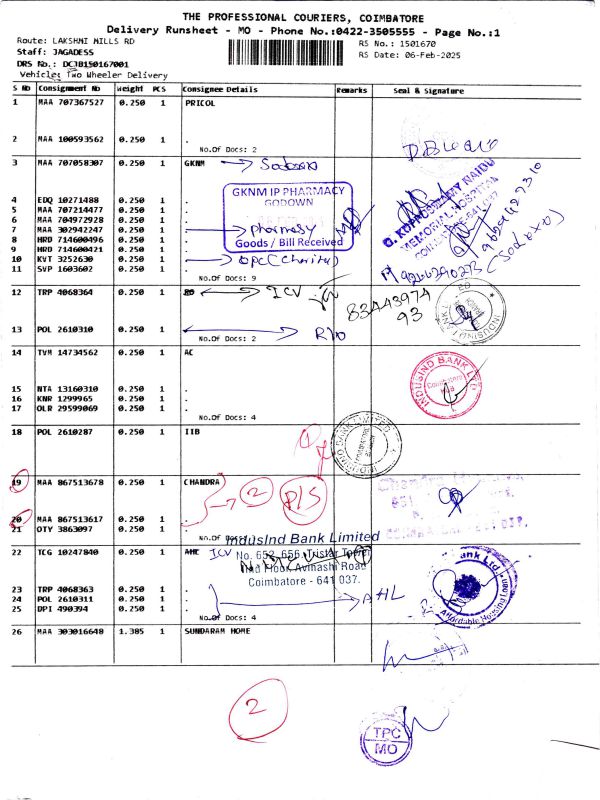 THE PROFESSIONAL COURIERS, COIMBATORE
Delivery Runsheet - MO - Phone No.:0422-3505555 - Page No.:1
Route: LAKSHMI MILLS RD
RS No.: 1501670
Staff: JAGADESS
RS Date: 06-Feb-2025
DRS No.: DCJB150167001
Vehicle: Two Wheeler Delivery
S No Consignment No Weight PCS Consignee Details Remarks Seal & Signature
1 MAA 707367527 0.250 1 PRICOL
2 MAA 100593562 0.250 1 .
No.Of Docs: 2
3 MAA 707058307 0.250 1 GKNM
GKNM IP PHARMACY
GODOWN
Goods / Bill Received
G. KUPPUSWAMY NAIDU
MEMORIAL HOSPITAL
4 EDQ 10271488 0.250 1 .
5 MAA 707214477 0.250 1 .
6 MAA 704972928 0.250 1 .
7 MAA 302942247 0.250 1 . pharmasy
8 HRD 714600496 0.250 1 .
9 HRD 714600421 0.250 1 .
10 KVT 3252630 0.250 1 .
11 SVP 1603602 0.250 1 .
No.Of Docs: 9
12 TRP 4068364 0.250 1 ICV
83443974
93
13 POL 2610310 0.250 1 .
No.Of Docs: 2
14 TVM 14734562 0.250 1 AC
INDUSIND BANK LTD
15 NTA 13160310 0.250 1 .
16 KNR 1299965 0.250 1 .
17 OLR 29599069 0.250 1 .
No.Of Docs: 4
18 POL 2610287 0.250 1 IIB
INDUSIND BANK LIMITED
19 MAA 867513678 0.250 1 CHANDRA
2 P/S
20 MAA 867513617 0.250 1 .
21 OTY 3863097 0.250 1 .
IndusInd Bank Limited
No. 652-656, Tristar Tower
Floor, Avinashi Road
Coimbatore - 641 037.
22 TCG 10247840 0.250 1 AHC ICV
23 TRP 4068363 0.250 1 .
24 POL 2610311 0.250 1 . AHL
25 DPI 490394 0.250 1 .
No.Of Docs: 4
Affordable Housing Loan
26 MAA 303016648 1.385 1 SUNDARAM HOME
2
TPC
MO